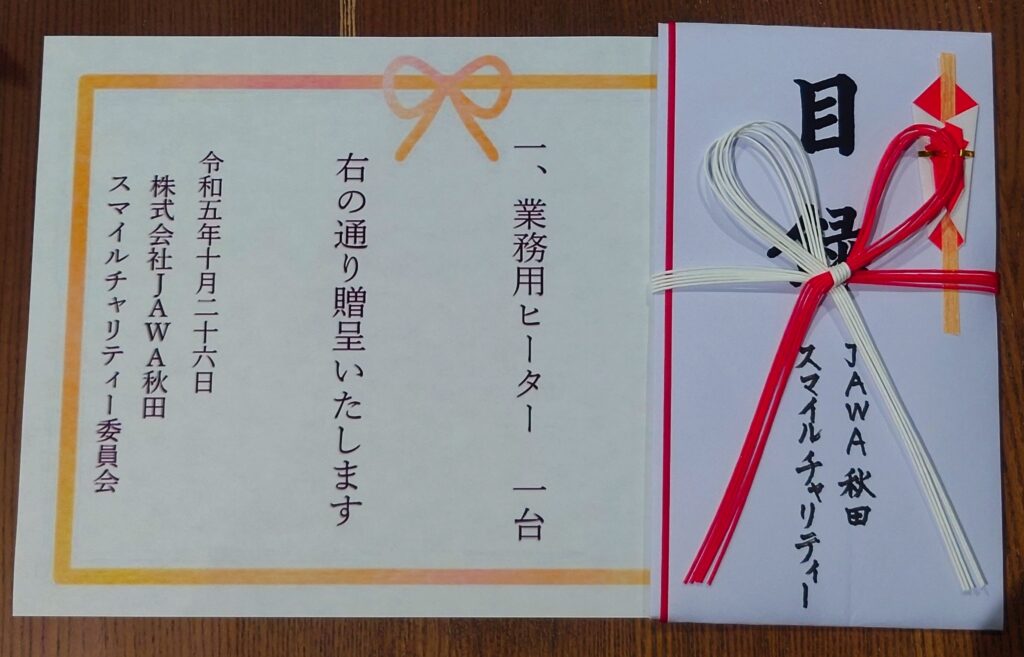 目録
JAWA秋田
スマイルチャリティー
一、業務用ヒーター 一台
右の通り贈呈いたします
令和五年十月二十六日
株式会社JAWA秋田
スマイルチャリティー委員会